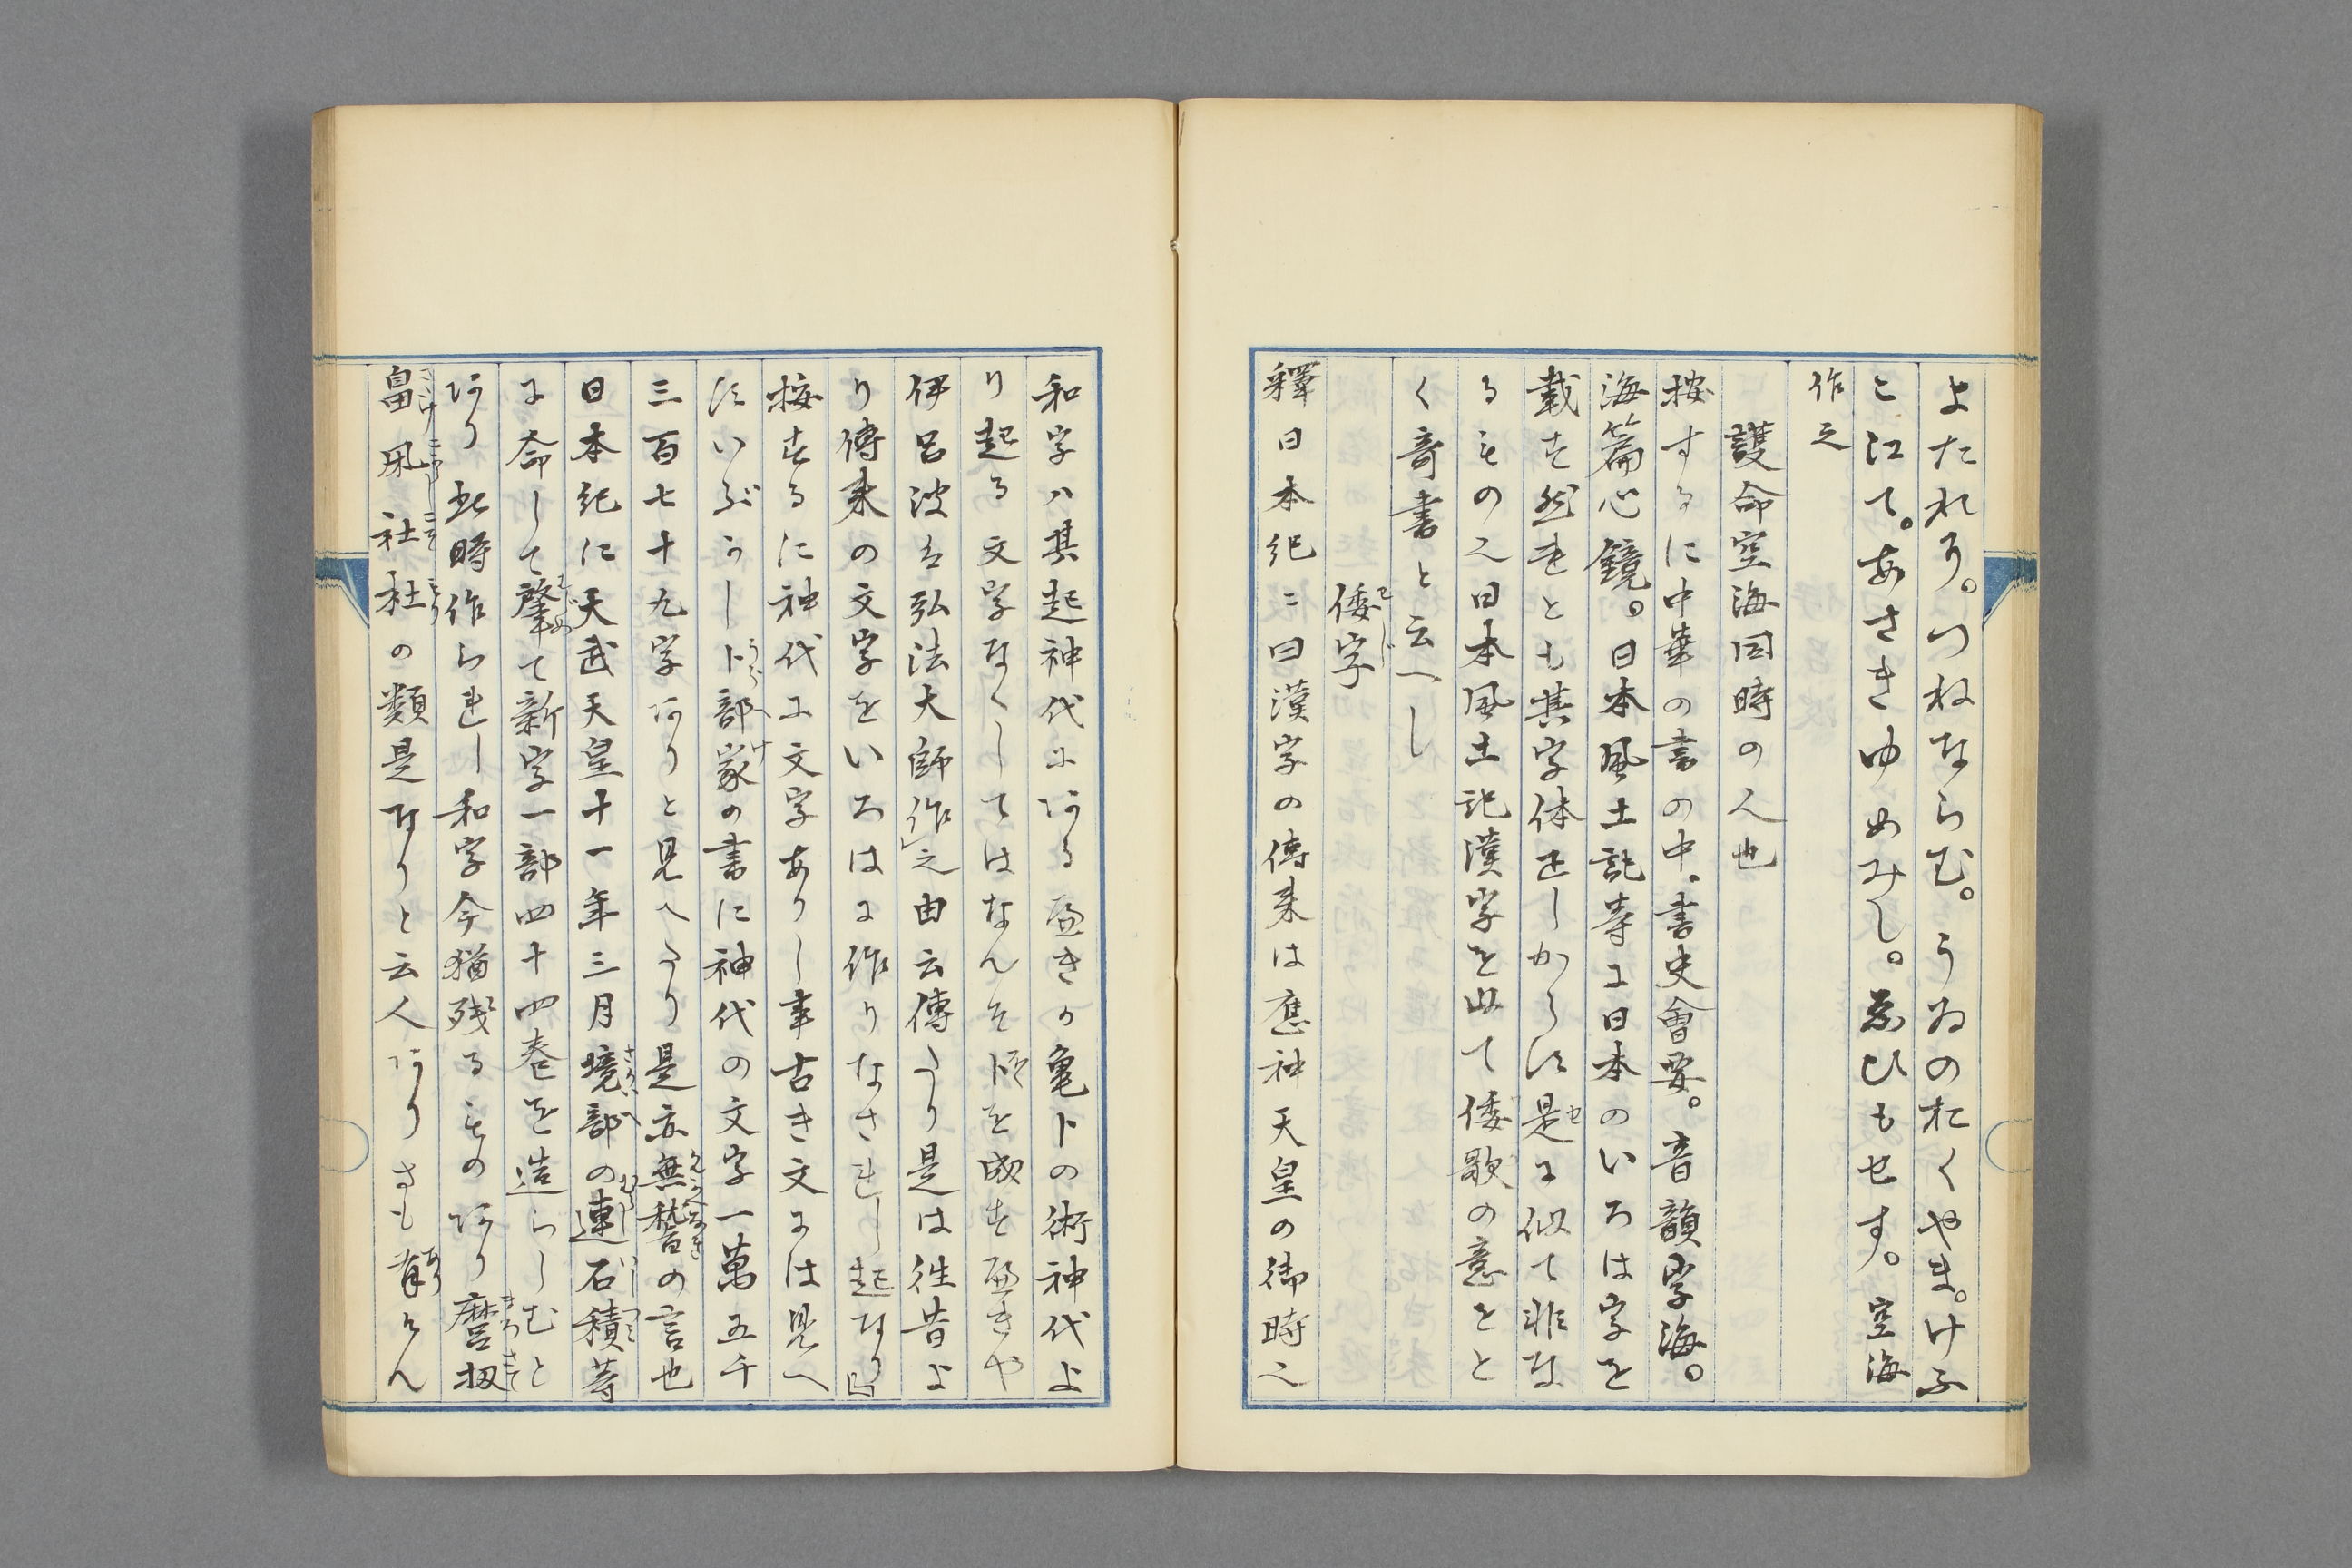 よたれり。つねならむ。うゐのおくやま。けふ
こ江て。あさきゆめみし。ゑひもせす。空海
作之
護命空海同時の人也
按するに中華の書の中、書史會要。音韻字海。
海篇心鏡。日本風土記等に日本のいろは字を
載す然れとも其字体正しからす是に似て非な
るもの也日本風土記漢字を以て倭歌の意をと
く奇書と云へし
倭字
釋日本紀ニ曰漢字の傳来は應神天皇の御時也
和字ハ其起神代にある歟きか亀卜の術神代よ
り起る文字なくしてはなんそ卜を成す歟きや
伊呂波は弘法大師作之由云傳たり是は往昔よ
り傳来の文字をいろはに作りなされし起なり
按するに神代に文字ありし事古き文には見へ
すいぶかし卜部家の書に神代の文字一萬五千
三百七十九字ありと見へたり是亦無稽の言也
日本紀に天武天皇十一年三月境部の連石積等
に命して肇て新字一部四十四巻を造らしむと
あり此時作られし和字今猶残るものあり麿扨
畠凩社杜の類是なりと云人ありさも有らん